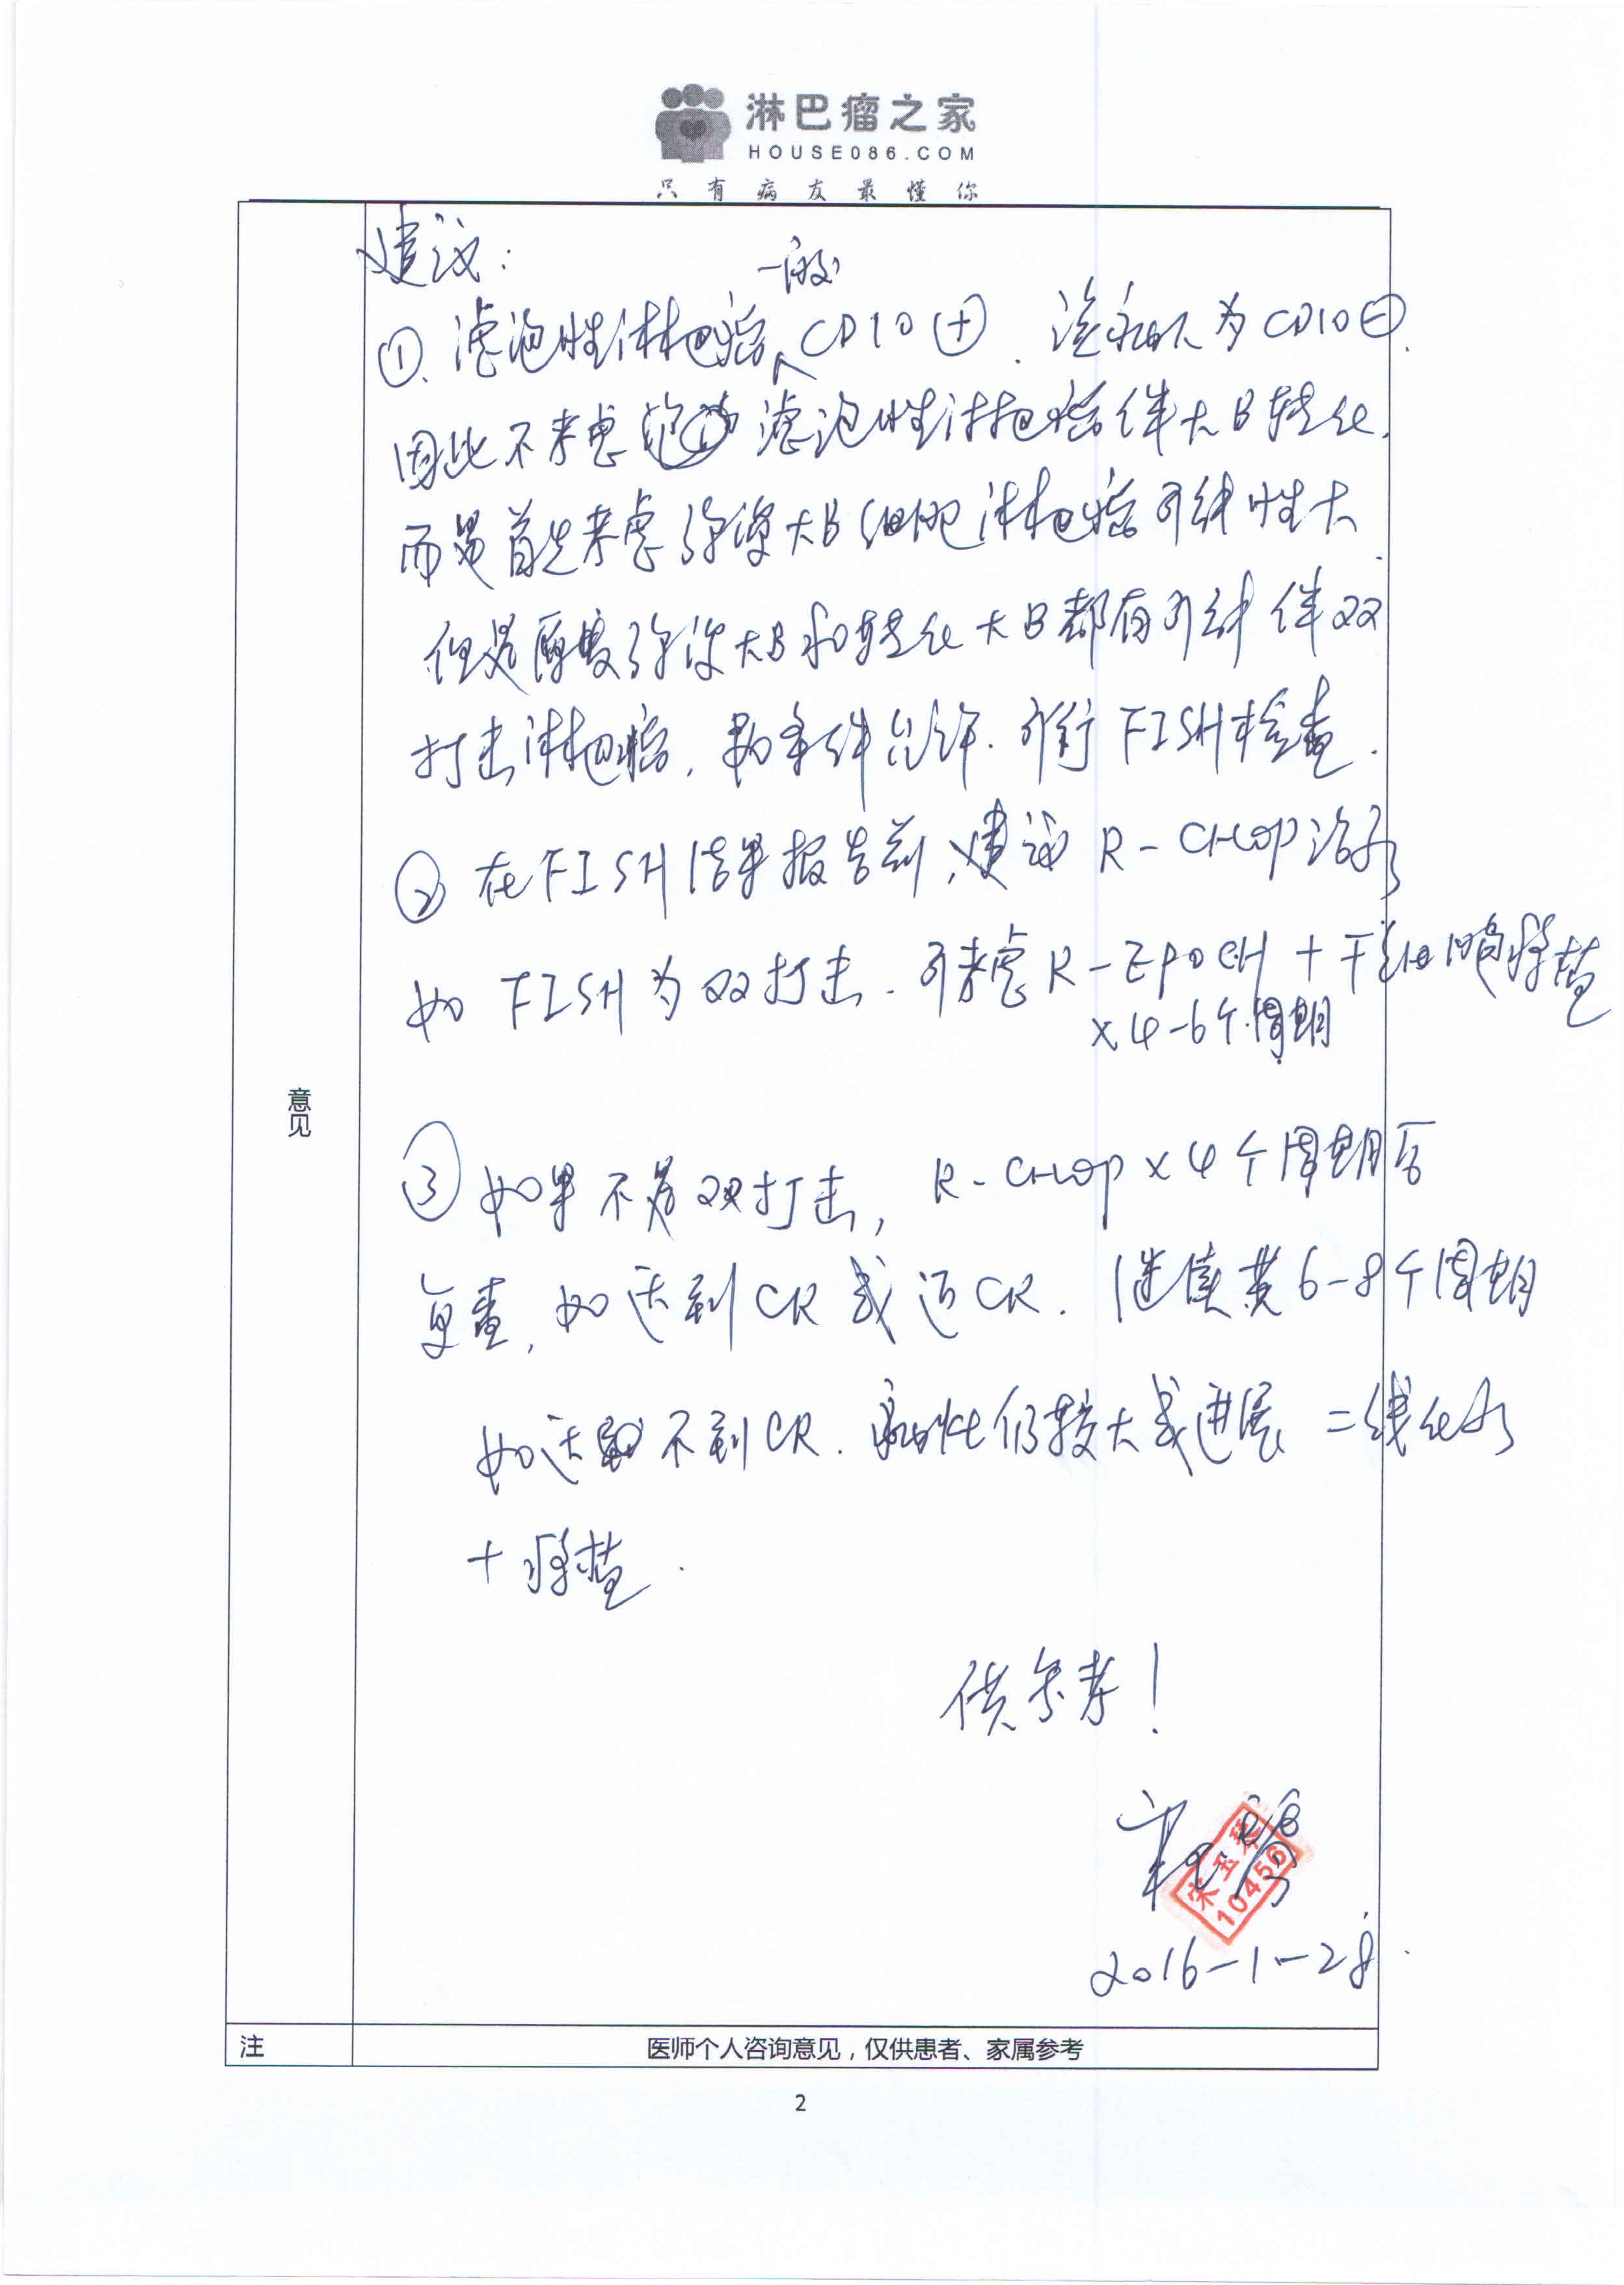 淋巴瘤之家
HOUSE086.COM
只有病友最懂你
建议:
①. 滤泡性淋巴瘤一般CD10⊕. 该病人为CD10⊖.
因此不考虑 滤泡性淋巴瘤伴大B转化.
而是首先考虑弥漫大B细胞淋巴瘤可能性大.
但是原发弥漫大B和转化大B都有可能伴双
打击淋巴瘤, 条件允许. 可行FISH检查.
② 在FISH结果报告前, 建议R-CHOP治疗
如FISH为双打击. 可考虑R-EPOCH + 干细胞移植
×4-6个周期
意见
③ 如果不是双打击, R-CHOP×4个周期后
复查, 如达到CR或近CR. 继续 6-8个周期
如达不到CR. 病灶仍较大或进展 二线化疗
+移植.
供参考!
宋玉琴
10456
2016-1-28.
注
医师个人咨询意见，仅供患者、家属参考
2